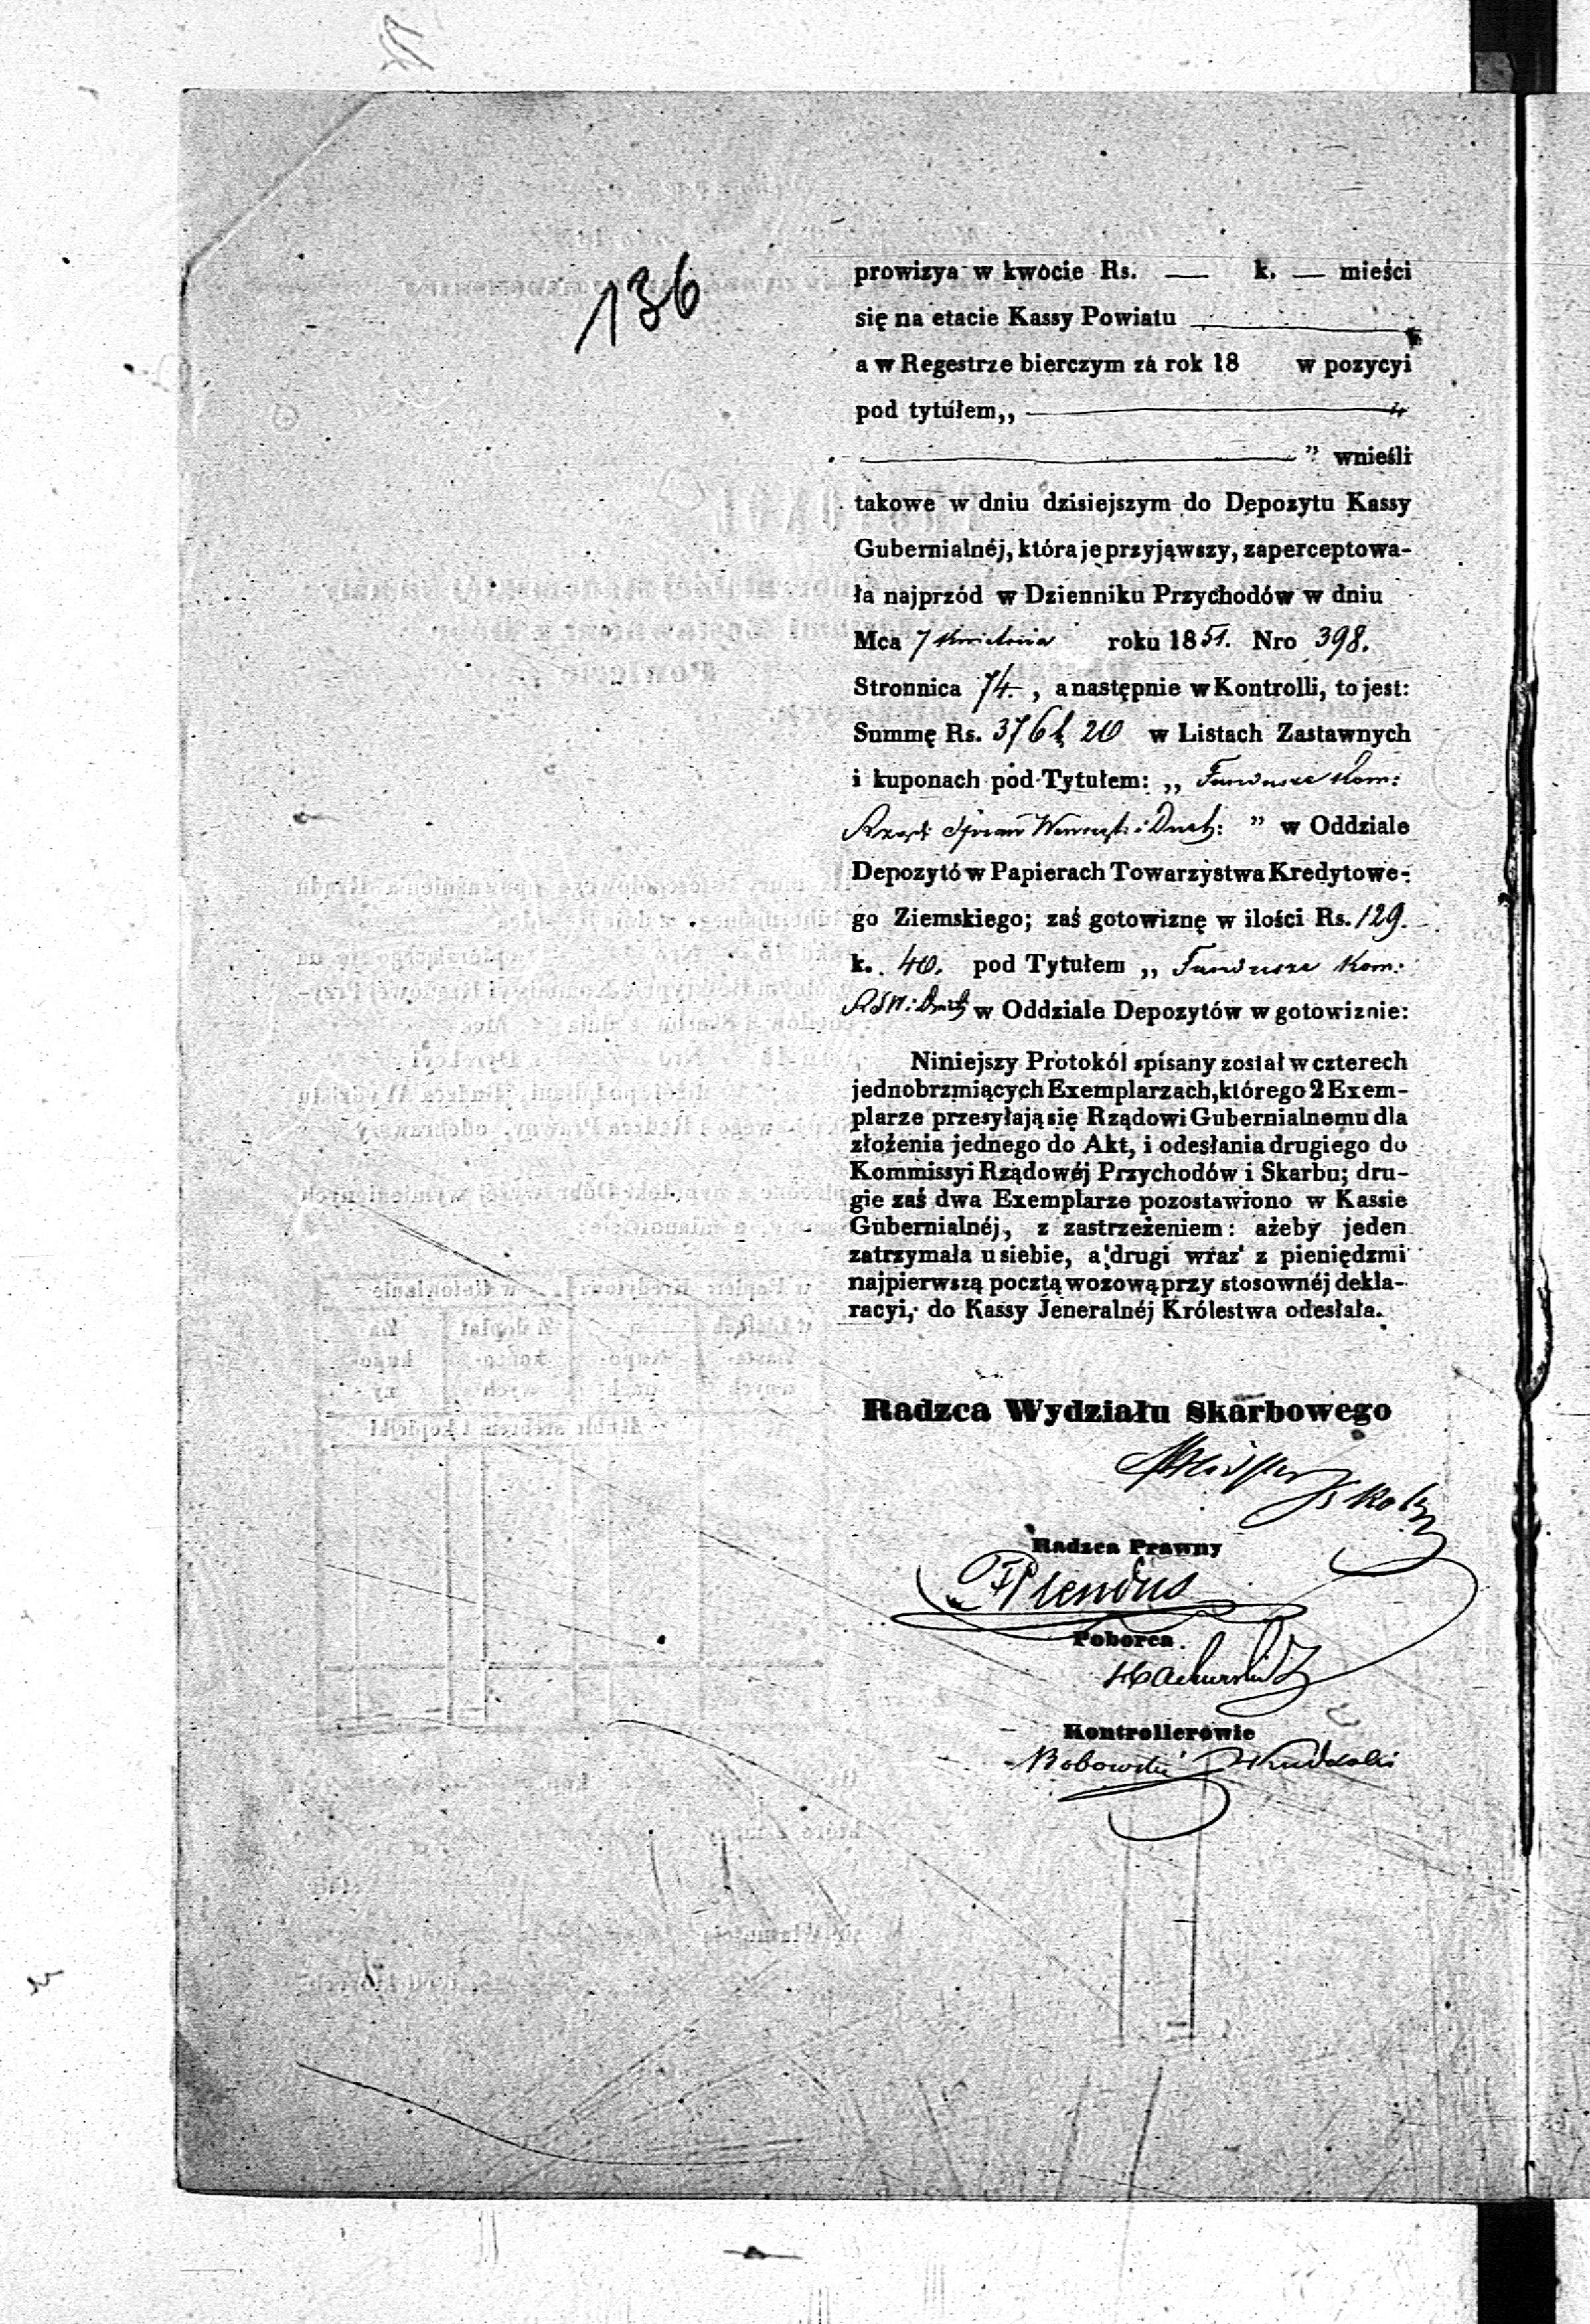 136
prowizya w kwocie Rs. — k. — mieści
się na etacie Kassy Powiatu
a w Regestrze bierczym za rok 18 w pozycyi
pod tytułem,,
" wnieśli
takowe w dniu dzisiejszym do Depozytu Kassy
Gubernialnéj, która je przyjąwszy, zaperceptowa-
ła najprzód w Dzienniku Przychodów w dniu
Mca 7 Kwietnia roku 1851. Nro 398.
Stronnica 74. , a następnie w Kontrolli, to jest:
Summę Rs. 376 k 20 w Listach Zastawnych
i kuponach pod Tytułem: ,, Fundusze Kom:
Rząd: Spraw Wewnęt: i Duch: " w Oddziale
Depozytów w Papierach Towarzystwa Kredytowe-
go Ziemskiego; zaś gotowiznę w ilości Rs. 129.
k. 40. pod Tytułem ,, Fundusze Kom:
w Oddziale Depozytów w gotowiznie:
Niniejszy Protokól spisany został w czterech
jednobrzmiących Exemplarzach, którego 2 Exem-
plarze przesyłają się Rządowi Gubernialnemu dla
złożenia jednego do Akt, i odesłania drugiego do
Kommissyi Rządowéj Przychodów i Skarbu; dru-
gie zaś dwa Exemplarze pozostawiono w Kassie
Gubernialnéj, z zastrzeżeniem: ażeby jeden
zatrzymała u siebie, a drugi wraz z pieniędzmi
najpierwszą pocztą wozową przy stosownéj dekla-
racyi, do Kassy Jeneralnéj Królestwa odesłała.
Radzca Wydziału Skarbowego
Radzca Prawny
Poborca
Kontrollerowie
Bobowski